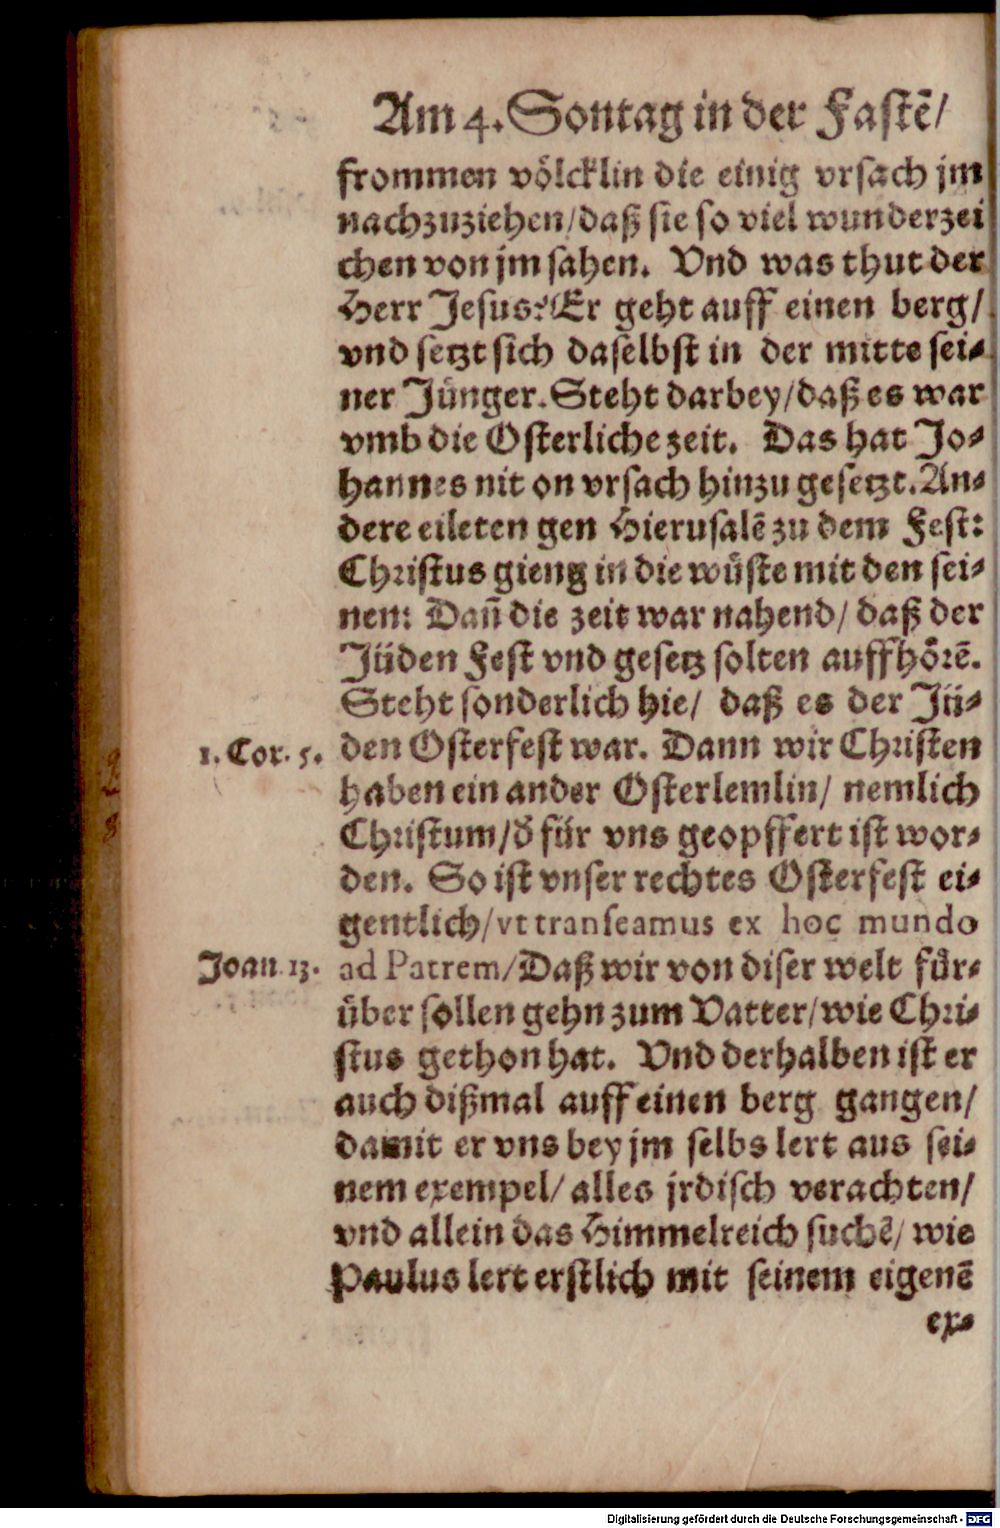 Am 4. Sontag in der Fastẽ/
frommen völcklin die einig vrsach jm
nachzuziehen/daß sie so viel wunderzei
chen von jm sahen. Vnd was thut der
Herr Jesus? Er geht auff einen berg/
vnd setzt sich daselbst in der mitte sei⸗
ner Jünger. Steht darbey/daß es war
vmb die Osterliche zeit. Das hat Jo⸗
hannes nit on vrsach hinzu gesetzt. An⸗
dere eileten gen Hierusalẽ zu dem Fest:
Christus gieng in die wüste mit den sei⸗
nen: Dañ die zeit war nahend/ daß der
Jüden Fest vnd gesetz solten auffhörẽ.
Steht sonderlich hie/ daß es der Jü⸗
1. Cor. 5. den Osterfest war. Dann wir Christen
haben ein ander Osterlemlin/ nemlich
Christum/ď für vns geopffert ist wor⸗
den. So ist vnser rechtes Osterfest ei⸗
gentlich/vt transeamus ex hoc mundo
Joan. 13. ad Patrem/Daß wir von diser welt für⸗
über sollen gehn zum Vatter/wie Chri⸗
stus gethon hat. Vnd derhalben ist er
auch dißmal auff einen berg gangen/
damit er vns bey jm selbs lert aus sei⸗
nem exempel/ alles jrdisch verachten/
vnd allein das Himmelreich suchẽ/ wie
Paulus lert erstlich mit seinem eigenẽ
ex⸗
Digitalisierung gefördert durch die Deutsche Forschungsgemeinschaft - DFG